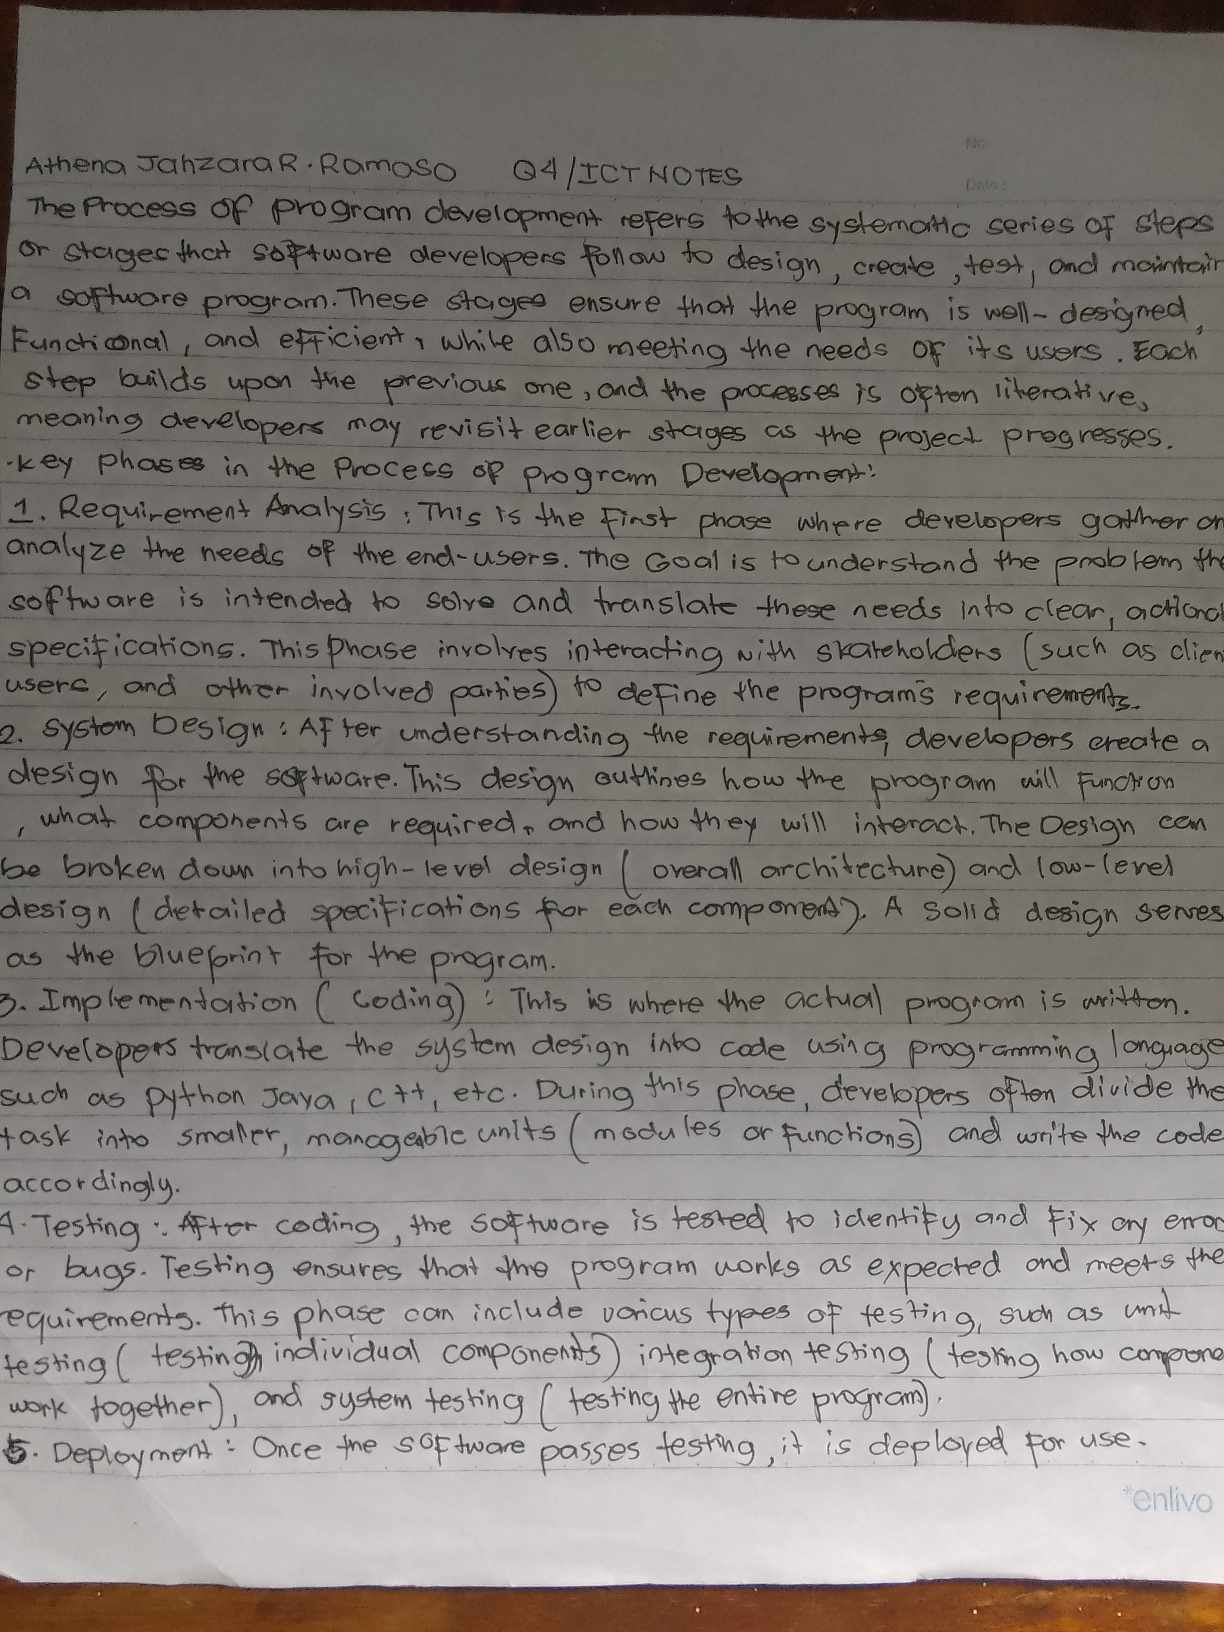 No.
Date:
Athena Jahzara R. Ramoso Q4/ICT NOTES
The Process of program development refers to the systematic series of steps
or stages that software developers follow to design, create, test, and maintain
a software program. These stages ensure that the program is well-designed,
Functional, and efficient, while also meeting the needs of its users. Each
step builds upon the previous one, and the processes is often literative,
meaning developers may revisit earlier stages as the project progresses.
·Key phases in the Process of program Development:
1. Requirement Analysis: This is the first phase where developers gather an
analyze the needs of the end-users. The Goal is to understand the problem the
software is intended to solve and translate these needs into clear, actiona
specifications. This Phase involves interacting with skateholders (such as clien
users, and other involved parties) to define the program's requirements.
2. System Design: After understanding the requirements, developers create a
design for the software. This design outlines how the program will Function
, what components are required, and how they will interact. The Design can
be broken down into high-level design (overall architecture) and low-level
design (detailed specifications for each component). A Solid design serves
as the blueprint for the program.
3. Implementation (Coding): This is where the actual program is written.
Developers translate the system design into code using programming language
such as python Java, C++, etc. During this phase, developers often divide the
task into smaller, manageable units (modules or functions) and write the code
accordingly.
4. Testing: After coding, the software is tested to identify and Fix any error
or bugs. Testing ensures that the program works as expected and meets the
requirements. This phase can include various types of testing, such as unit
testing (testing individual components) integration testing (testing how compone
work together), and system testing (testing the entire program).
5. Deployment: Once the software passes testing, it is deployed for use.
*enlivo